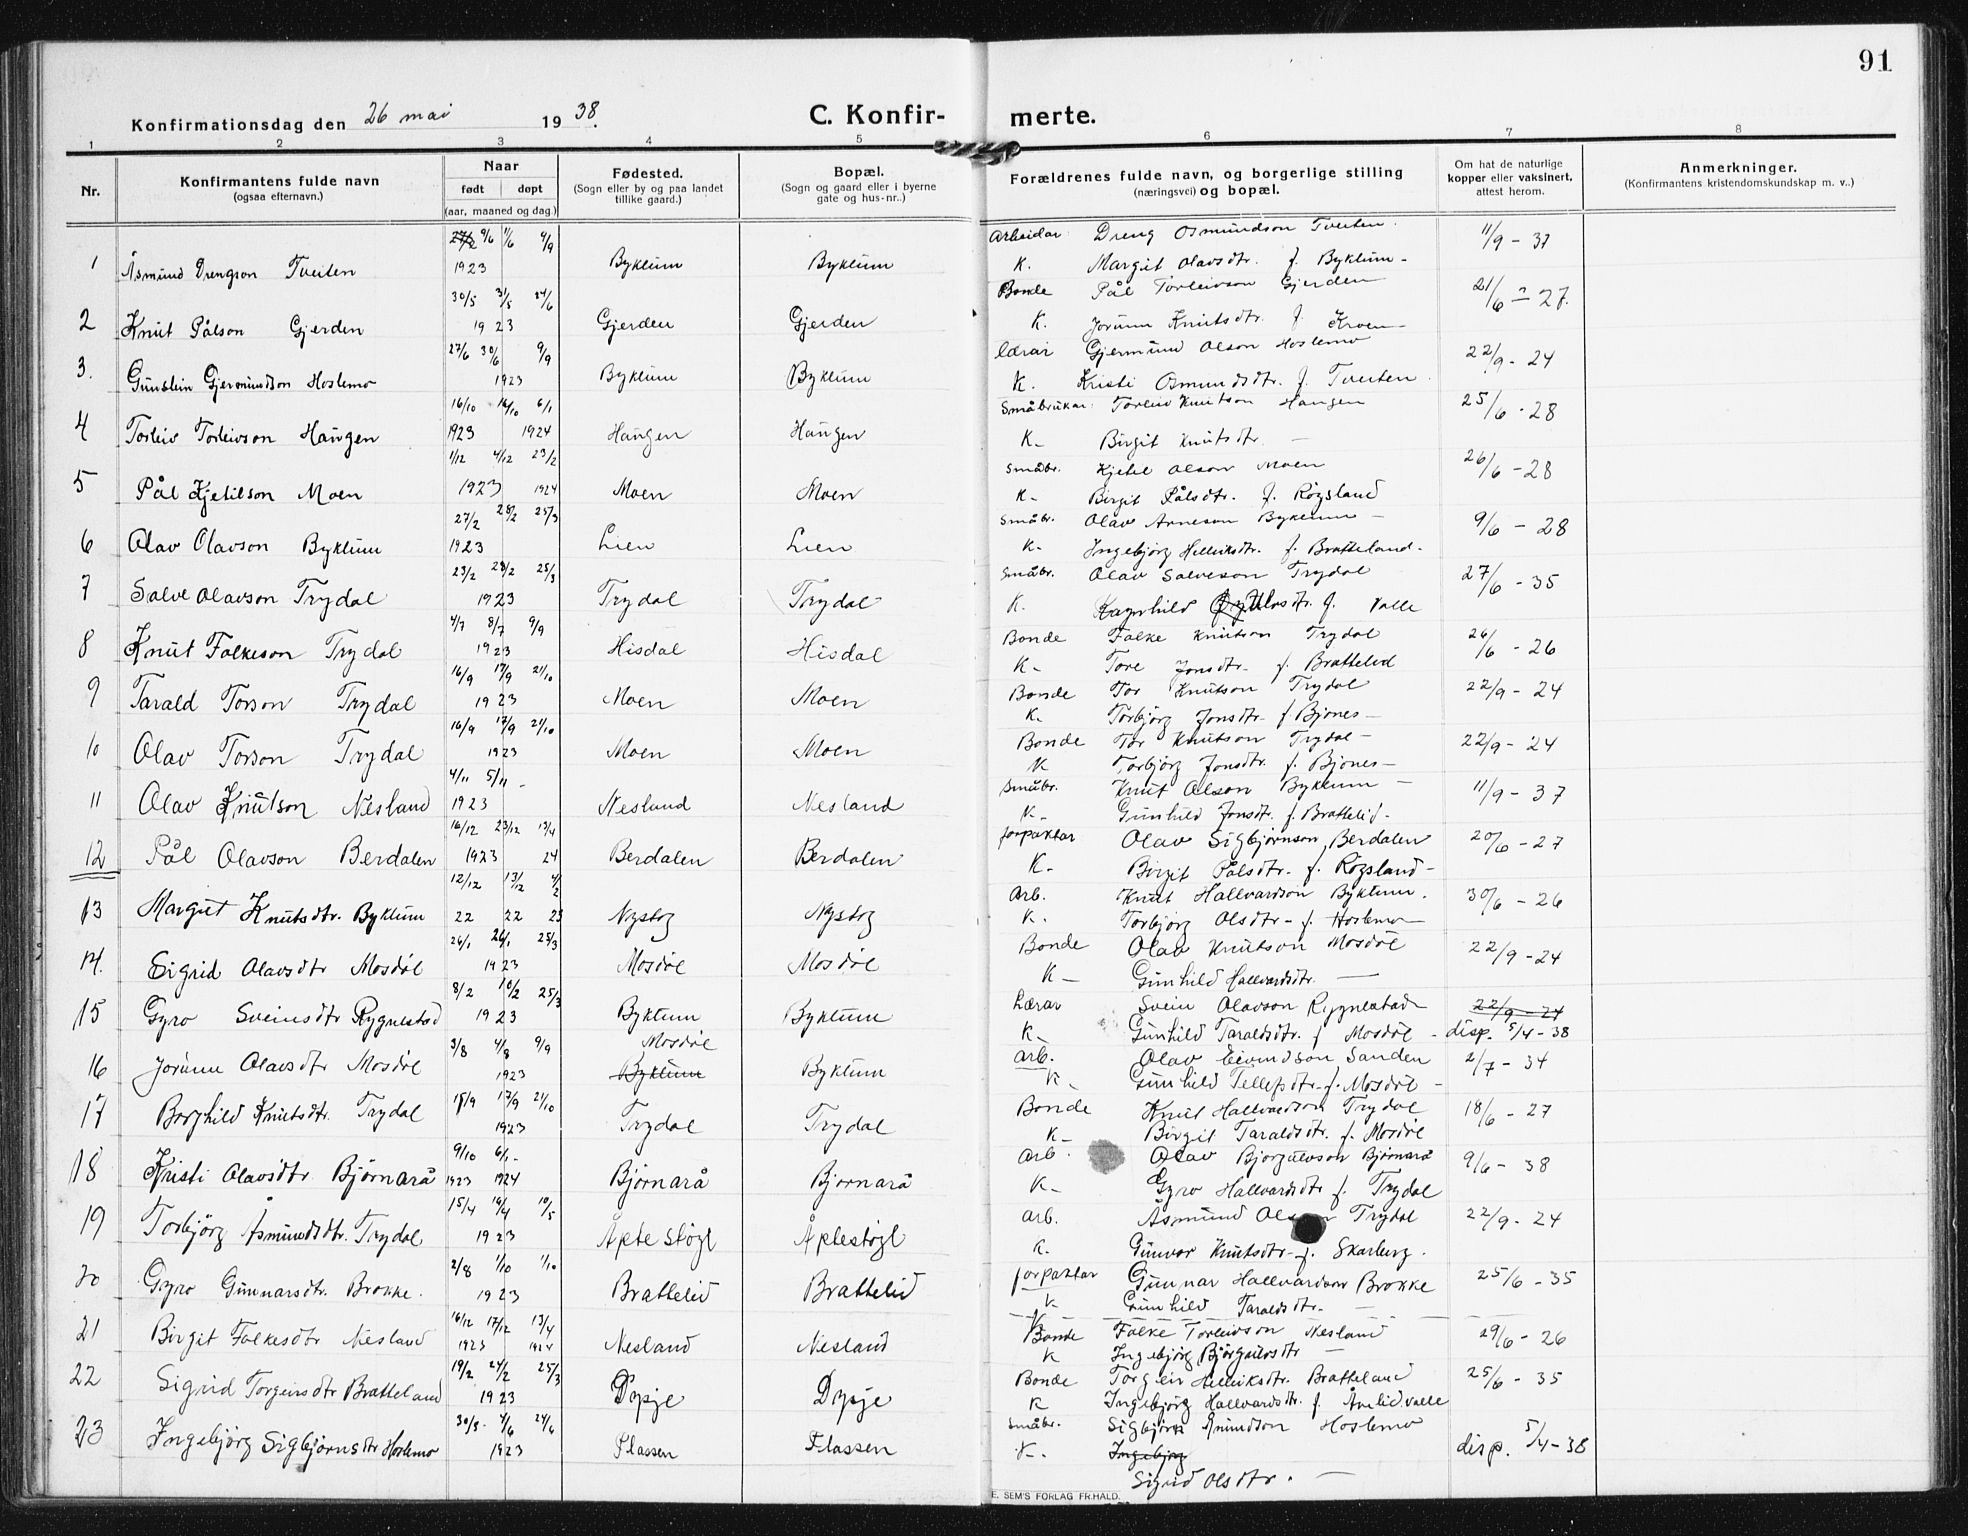 91
Konfirmationsdag den 26 mai 1938.
C. Konfir- merte.
1 2 3 4 5 6 7 8
Nr.
Konfirmantens fulde navn
(ogsaa efternavn.)
Naar
født døpt
(aar, maaned og dag)
Fødested.
(Sogn eller by og paa landet
tillike gaard.)
Bopæl.
(Sogn og gaard eller i byerne
gate og hus-nr..)
Forældrenes fulde navn, og borgerlige stilling
(næringsvei) og bopæl.
Om hat de naturlige
kopper eller vaksinert,
attest herom.
Anmerkninger.
(Konfirmantens kristendomskundskap m. v..)
9/6 1/6 9/9 Arbeidar Dreng Osmundson Tveiten 11/9 - 37
1 Åsmund Drengson Tveiten 1923 Byklum Byklum K. Margit Olavsdtr. f. Byklum -
30/5 31/5 24/6 Bonde Pål Torleivson Gjerden 21/6 - 27.
2 Knut Pålson Gjerden 1923 Gjerden Gjerden K. Jorunn Knutsdtr. f. Kroen -
27/6 30/6 9/9 lærar Gjermund Olson Hoslemo 22/9 - 24
3. Gunstein Gjermundson Hoslemo 1923 Byklum Byklum K. Kristi Osmundsdtr. f. Tveiten.
16/10 16/10 6/1 Småbrukar Torleiv Knutson Haugen 25/6 - 28
4 Torleiv Torleivson Haugen 1923 1924 Haugen Haugen K- Birgit Knutsdtr. -
1/12 4/12 23/2 Småbr. Kjetil Olson Moen 26/6 - 28
5 Pål Kjetilson Moen 1923 1924 Moen Moen K- Birgit Pålsdtr. f. Røysland
27/2 28/2 25/3 Småbr. Olav Arneson Byklum - 9/6 - 28
6 Olav Olavson Byklum 1923 Lien Lien K- Ingebjørg Hellviksdtr. f. Bratteland.
23/2 23/2 25/3 Småbr. Olav Salveson Trydal 27/6 - 35
7 Salve Olavson Trydal 1923 Trydal Trydal K. Ragnhild f. Valle
4/7 8/7 9/9 Bonde Folke Knutson Trydal 26/6 - 26
8 Knut Folkeson Trydal 1923 Hisdal Hisdal K- Tore Jonsdtr. f. Brattelid
16/9 17/9 21/10 Bonde Tor Knutson Trydal 22/9 - 24
9 Tarald Torson Trydal 1923 Moen Moen K. Torbjørg Jonsdtr. f. Bjones -
16/9 17/9 21/10 Bonde Tor Knutson Trydal - 22/9 - 24
10 Olav Torson Trydal 1923 Moen Moen K Torbjørg Jonsdtr. f. Bjones -
4/11 5/11 - Småbr. Knut Olson Byklum - 11/9 - 37
11 Olav Knutson Nesland 1923 Nesland Nesland K- Gunhild Jonsdtr. f. Brattelid -
16/12 23/12 13/4 forpaktar Olav Sigbjørnson Berdalen 20/6 - 27
12 Pål Olavson Berdalen 1923 24 Berdalen Berdalen K- Birgit Pålsdtr. f. Røysland -
12/12 13/12 4/2 Arb. Knut Hallvardson Byklum. 30/6 - 26
13 Margit Knutsdtr. Byklum 22 22 23 Nystog Nystog K. Torbjørg Olsdtr. f. Hoslemo -
26/1 26/1 25/3 Bonde Olav Knutson Mosdøl 22/9 - 24
14. Sigrid Olavsdtr Mosdøl 1923 Mosdøl Mosdøl K - Gunhild Hallvardsdtr. -
8/2 10/2 25/3 Lærar Svein Olavson Rygnestad 22/9 - 24
15 Gyro Sveinsdtr Rygnestad 1923 Byklum Byklum K- Gunhild Taraldsdtr. f Mosdøl - disp. 5/4 - 38
3/8 4/8 9/9 Mosdøl arb. Olav Eivindson Sanden 2/7 - 34
16 Jorunn Olavsdtr Mosdøl 1923 Byklum Byklum K- Gunhild Tellefsdtr. f. Mosdøl -
15/9 17/9 21/10 Bonde Knut Hallvardson Trydal 18/6 - 27
17 Borghild Knutsdtr. Trydal 1923 Trydal Trydal K- Birgit Taraldsdtr. f. Mosdøl
9/10 6/1 - arb. Olav Bjorgulvson Bjørnarå 9/6 - 38
18 Kristi Olavsdtr Bjørnarå 1923 1924 Bjørnarå Bjørnarå K- Gyro Hallvardsdtr f. Trydal
15/4 19/4 10/5 arb. Åsmund Olson Trydal 22/9 - 24
19 Torbjørg Åsmundsdtr. Trydal 1923 Åplestøyl Åplestøyl K. Gunvor Knutsdtr. f. Skarberg.
2/8 1/10 1/10 forpaktar Gunnar Hallvardson Brokke 25/6 - 35
20 Gyro Gunnarsdtr. Brokke. 1923 Brattelid Brattelid K Gunhild Taraldsdtr. -
16/12 17/12 13/4 Bonde Folke Torleivson Nesland 29/6 - 26
21 Birgit Folkesdtr Nesland 1923 1924 Nesland Nesland K Ingebjørg Bjørgulvsdtr -
19/2 24/2 25/3 Bonde Torgeir Hellviksdtr. Bratteland 25/6 - 35
22 Sigrid Torgeirsdtr Bratteland 1923 Dysje Dysje K Ingebjørg Hallvardsdtr. f. Åmlid Valle
30/5 - 4/6 24/6 Småbr. Sigbjørn Åmundson Hoslemo
23 Ingebjørg Sigbjørnsdtr Hoslemo 1923 Flassen Flassen K-. Ingebjørg disp. 5/4 - 38
Sigrid Olsdtr. -
E. SEM'S FORLAG FR.HALD.